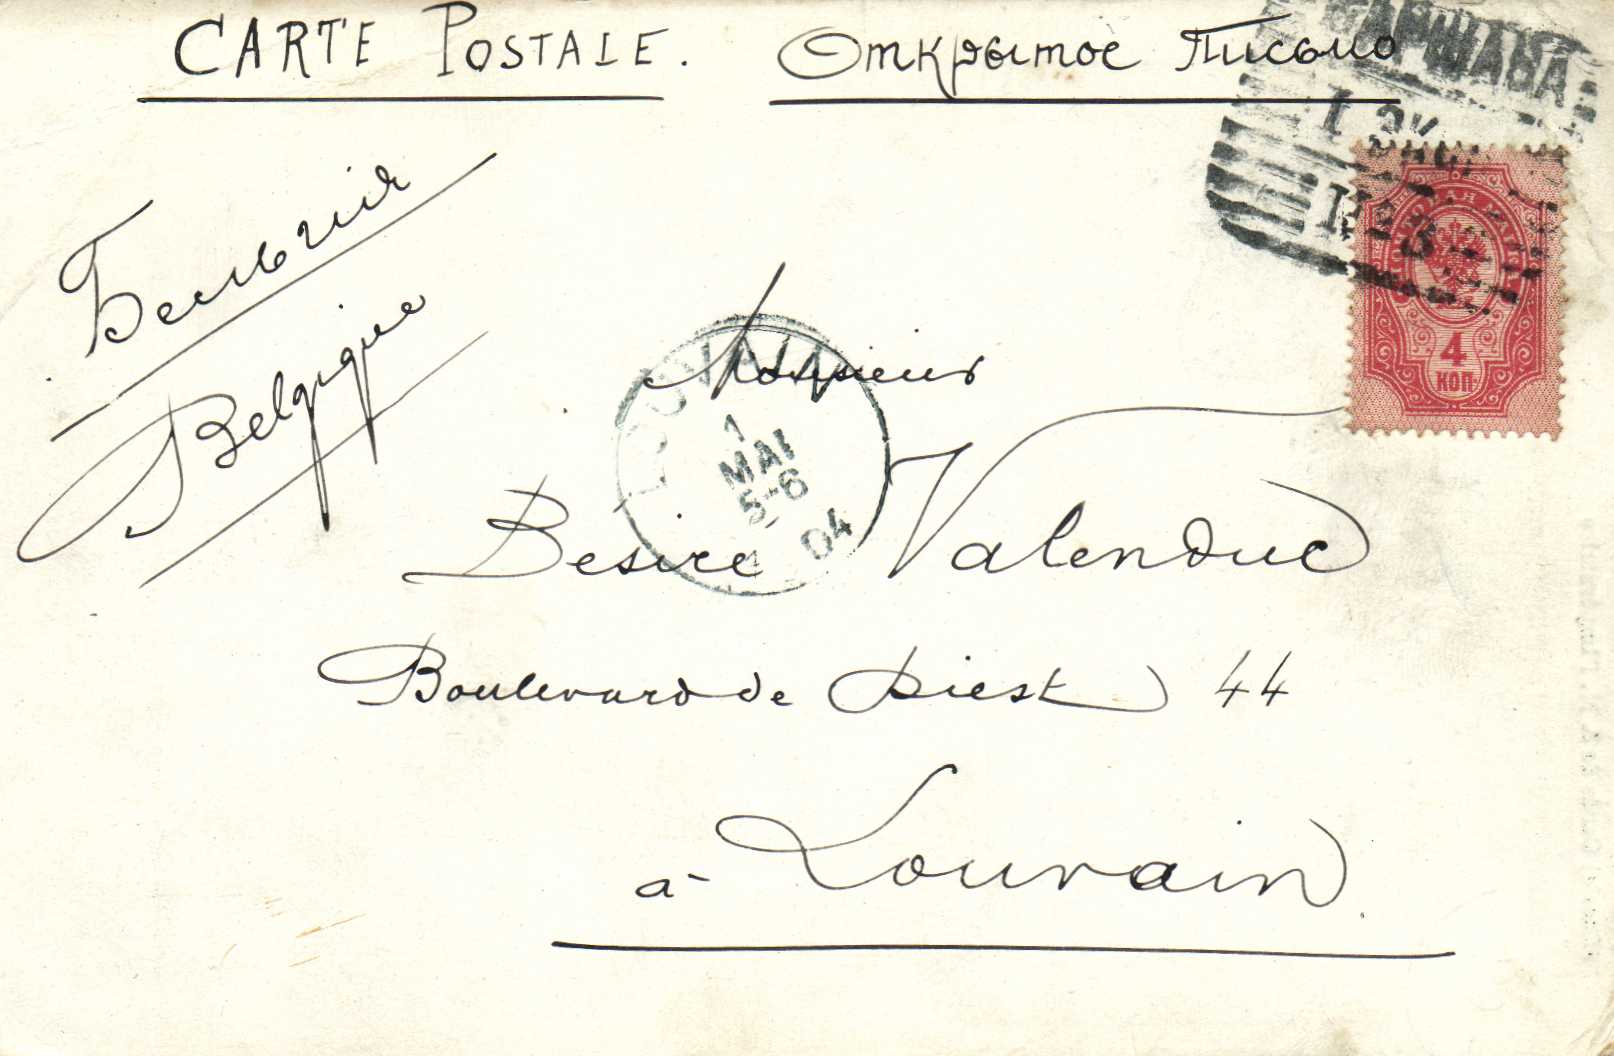 CARTE POSTALE. Открытое Письмо
ВАРШАВА
1 ЭК
4
КОП.
Бельгія
Belgique
LOUVAIN
1
MAI
5-6
04
Monsieur
Désiré Valenduc
Boulevard de Diest 44
à Louvain.